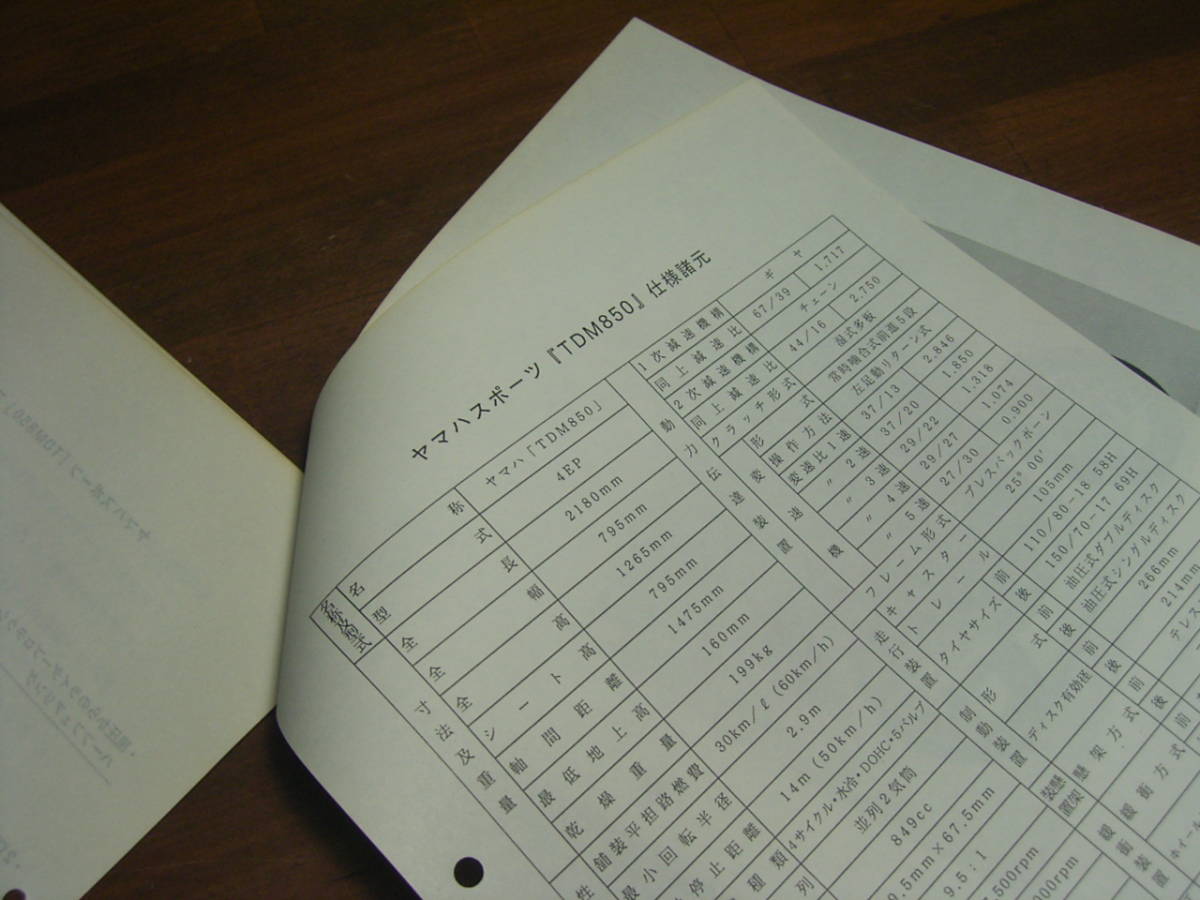 ヤマハスポーツ『TDM850』仕様諸元
名称及型式
名称 ヤマハ「TDM850」
型式 4EP
寸法及重量
全長 2180mm
全幅 795mm
全高 1265mm
シート高 795mm
軸間距離 1475mm
最低地上高 160mm
乾燥重量 199kg
性
舗装平担路燃費 30km/ℓ (60km/h)
最小回転半径 2.9m
停止距離 14m (50km/h)
種類 4サイクル・水冷・DOHC・5バルブ
列 並列2気筒
849cc
9.5mm×67.5mm
9.5:1
500rpm
000rpm
動力伝達装置
1次減速機構 ギヤ
同上減速比 67/39 1.717
2次減速機構 チェーン
同上減速比 44/16 2.750
クラッチ形式 湿式多板
変速機
形式 常時噛合式前進5段
操作方法 左足動リターン式
変速比1速 37/13 2.846
〃 2速 37/20 1.850
〃 3速 29/22 1.318
〃 4速 29/27 1.074
〃 5速 27/30 0.900
走行装置
フレーム形式 プレスバックボーン
キャスター 25°00′
トレール 105mm
タイヤサイズ 前 110/80-18 58H
後 150/70-17 69H
制動装置
形式 前 油圧式ダブルディスク
後 油圧式シングルディスク
ディスク有効径 前 266mm
後 214mm
懸架装置
懸架方式 前 テレス
後
緩衝装置
緩衝方式 前
ホイール